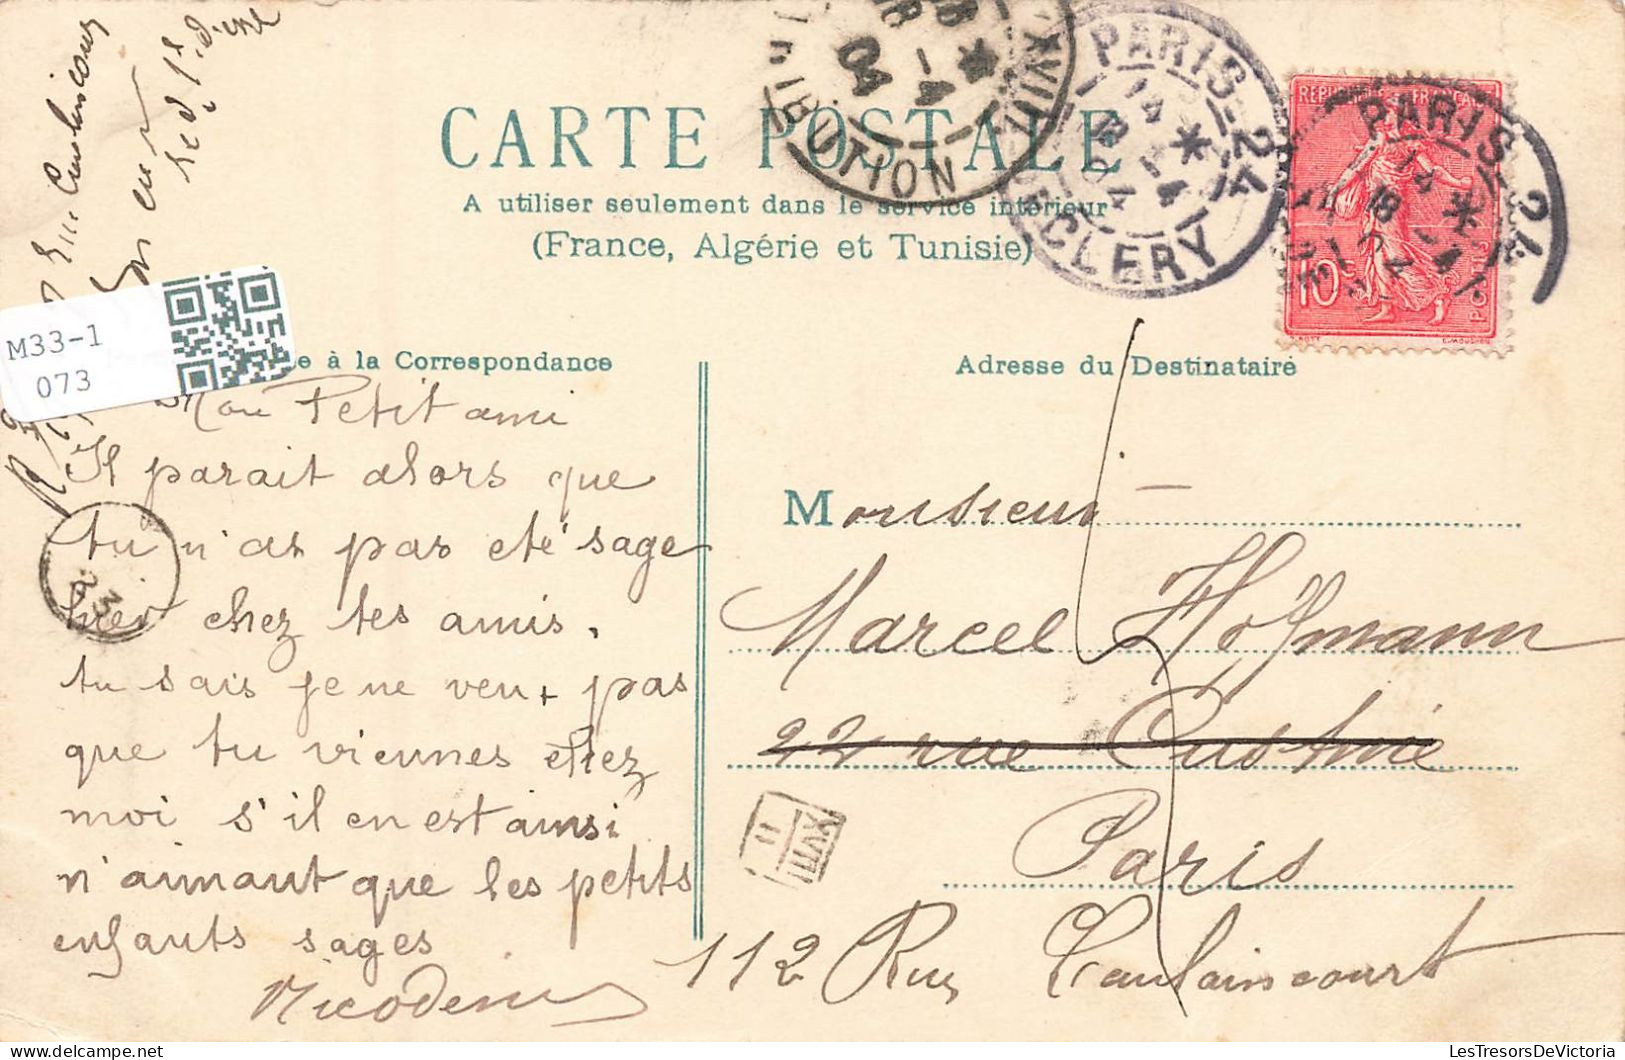 CARTE POSTALE
A utiliser seulement dans le service intérieur
(France, Algérie et Tunisie)
M33-1
073
à la Correspondance
Mon Petit ami
Il parait alors que
tu n'as pas eté sage
hier chez tes amis.
tu sais je ne veux pas
que tu viennes chez
moi s'il en est ainsi
n'aimant que les petits
enfants sages
Nicodem
Adresse du Destinataire
Monsieur
Marcel Hoffmann
22 rue Custine
Paris
112 Rue Caulaincourt
PARIS-24
R. DE CLERY
14
18
-4
04
DISTRIBUTION
XVIII
18
-4
04
REPUBLIQUE FRANÇAISE
POSTES
10c
PARIS-24
14
18
-4
XVIII
11
23
LesTresorsDeVictoria